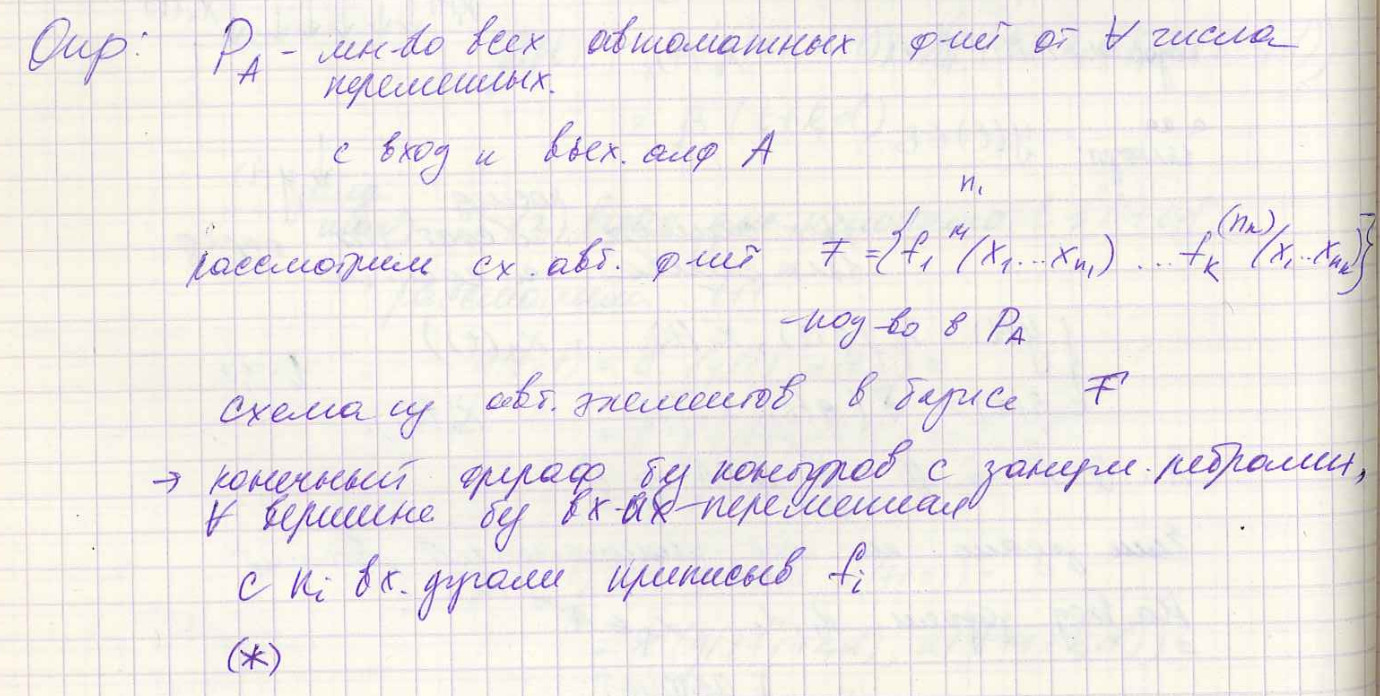 Опр: P_A - мн-во всех автоматных ф-ий от ∀ числа
переменных.
с вход и вых. алф A
n₁
рассмотрим сх. авт. ф-ий F = {f₁ (x₁...x_{n₁}) ... f_k^{(n_k)} (x₁...x_{n_k})}
-под-во в P_A
схема из авт. элементов в базисе F
→ конечный орграф без контуров с занум. ребрами,
∀ вершине без вх-их - переменная
с n_i вх. дугами приписыв f_i
(*)